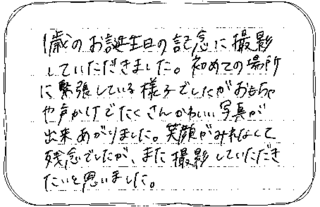 1歳のお誕生日の記念に撮影
していただきました。初めての場所
に緊張している様子でしたがおもちゃ
や声かけでたくさんかわいい写真が
出来あがりました。笑顔がみれなくて
残念でしたが、また撮影していただき
たいと思いました。